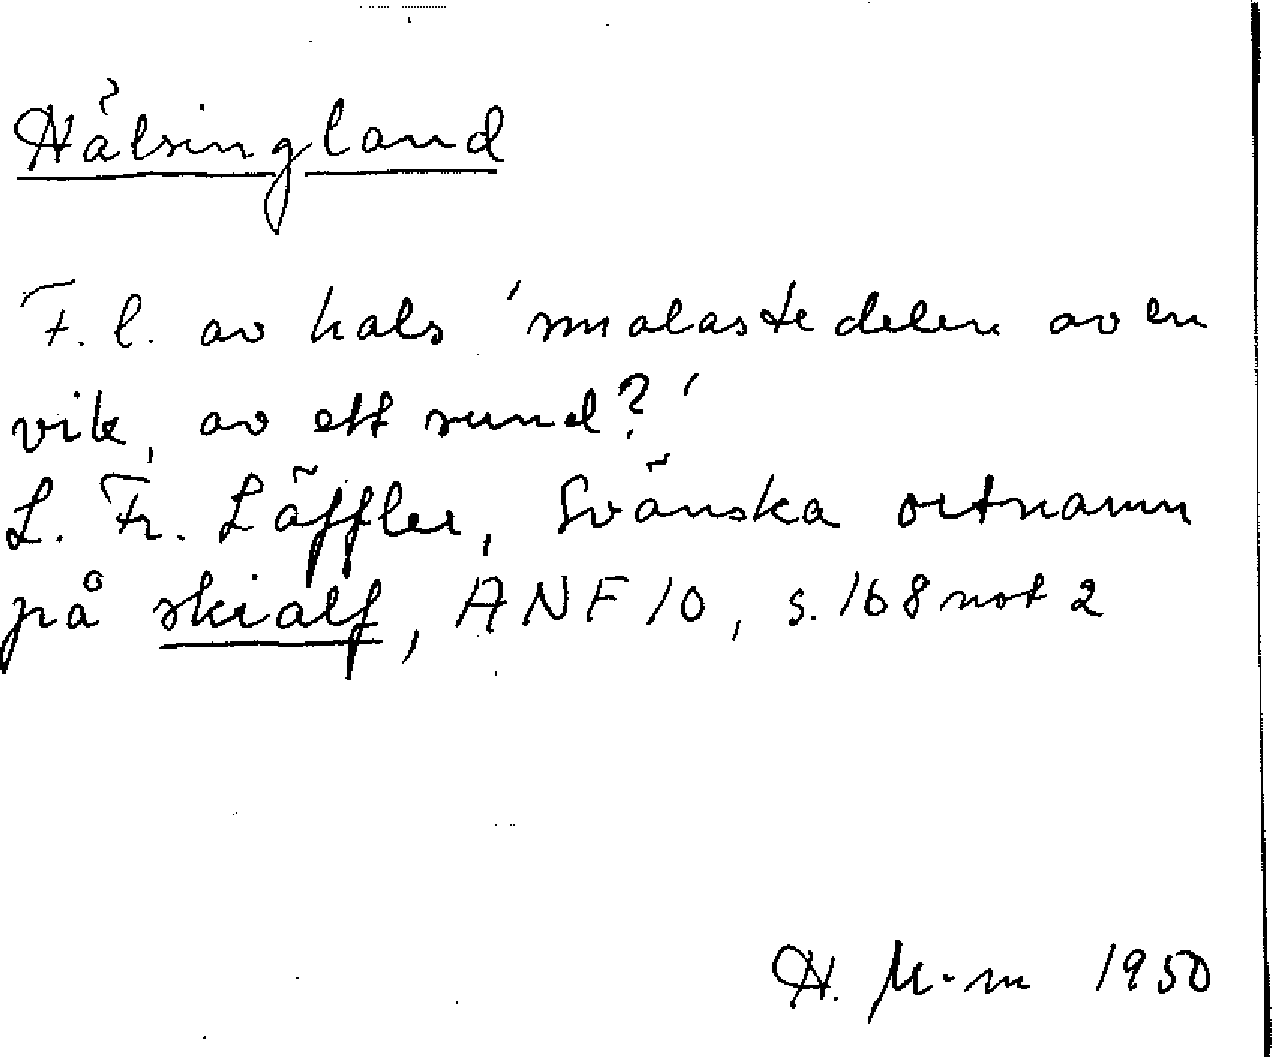 Hälsingland
F. l. av hals 'smalaste delen av en
vik, av ett sund?'
L. Fr. Läffler, Svänska ortnamn
på skialf, ANF 10, s. 168 not 2
H. M-m 1950